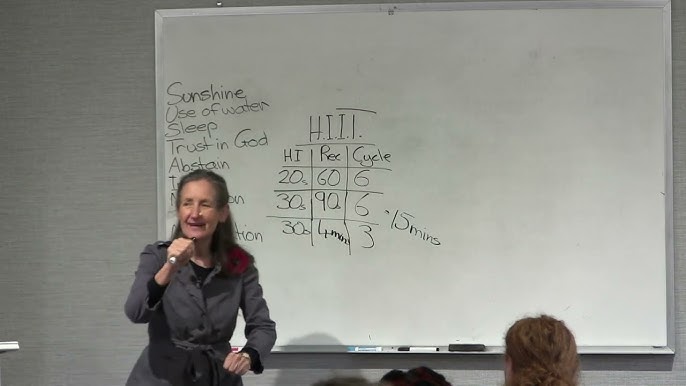 Sunshine
Use of water
Sleep
Trust in God
Abstain
H.I.I.T.
HI Rec Cycle
20s 60 6
30s 90s 6
30s 4mins 3
15mins